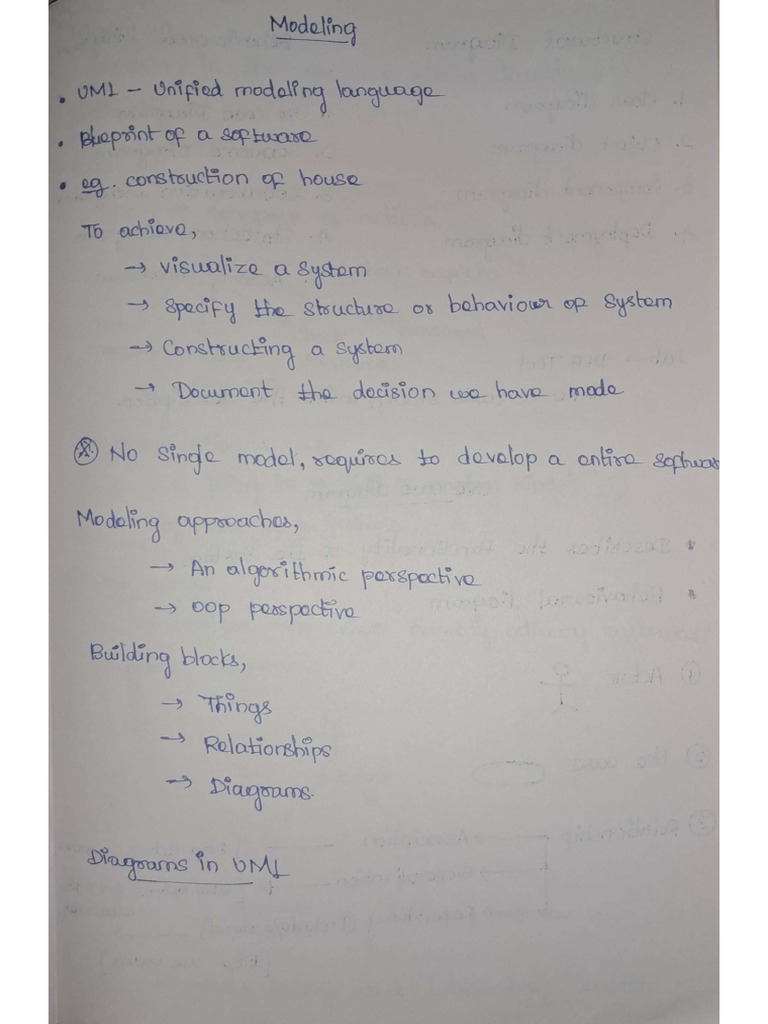 Modeling
• UML - Unified modeling language
• Blueprint of a software
• eg. construction of house
To achieve,
→ visualize a system
→ specify the structure or behaviour of system
→ Constructing a system
→ Document the decision we have made
* No single model, requires to develop a entire softwar
Modeling approaches,
→ An algorithmic perspective
→ OOP perspective
Building blocks,
→ Things
→ Relationships
→ Diagrams.
Diagrams in UML